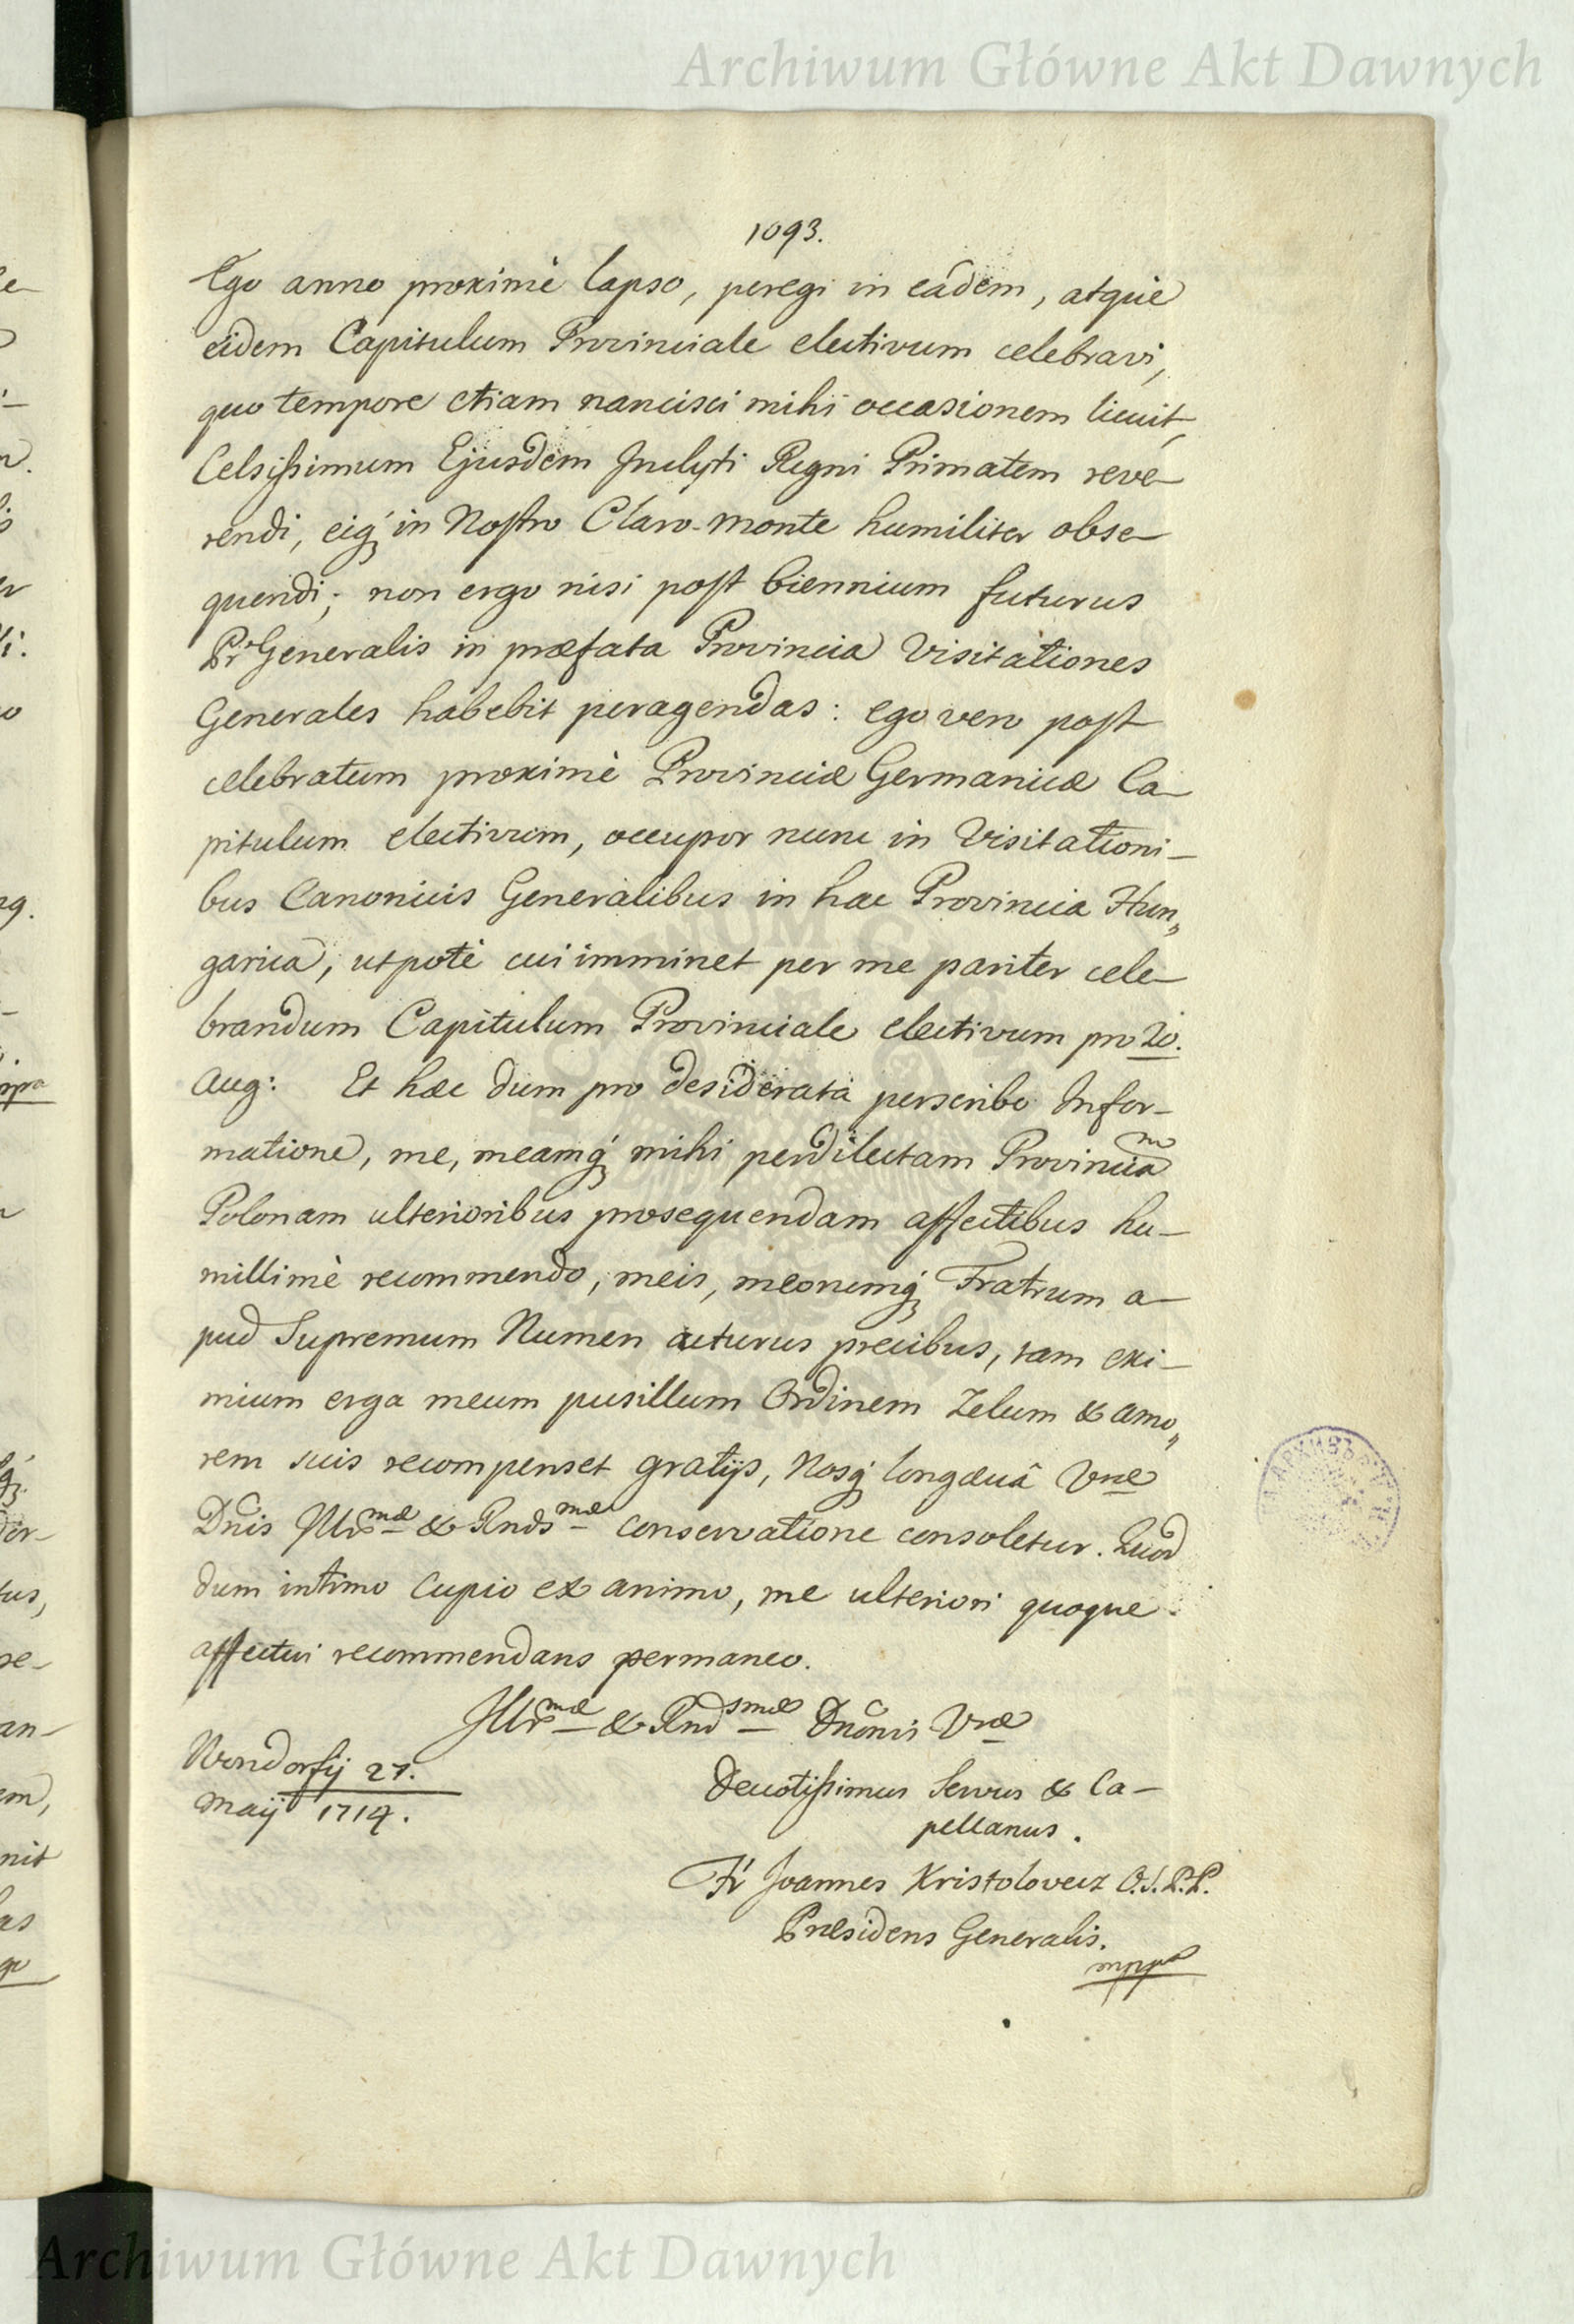 Archiwum Główne Akt Dawnych
1093.
Ego anno proximè lapso, peregi in eâdem, atque
eidem Capitulum Provinciale electivum celebravi,
quo tempore etiam nancisci mihi occasionem licuit,
Celsissimum Ejusdem Inclyti Regni Primatem reve-
rendi, eiq́ in Nostro Claro-monte humiliter obse-
quendi; non ergo nisi post biennium futurus
Pr Generalis in præfata Provincia Visitationes
Generales habebit peragendas: ego vero post
celebratum proximè Provinciæ Germanicæ Ca-
pitulum electivum, occupor nunc in Visitationi-
bus Canonicis Generalibus in hac Provincia Hun„
garica, utpotè cui imminet per me pariter cele-
brandum Capitulum Provinciale electivum pro 20.
Aug: Et hæc dum pro desiderata perscribo Infor-
matione, me, meamq́ mihi perdilectam Provinciam
Polonam ulterioribus prosequendam affectibus hu-
millimè recommendo, meis, meorumq́ Fratrum a-
pud Supremum Numen acturus precibus, tam exi-
mium erga meum pusillum Ordinem Zelum & amo„
rem suis recompenset gratijs, Nosq́ longævâ Vræ
Dnis Illrmæ & Rndsmæ conservatione consoletur. Quod
dum intimo cupio ex animo, me ulteriori quoque
affectui recommendans permaneo.
Illrmæ & Rndsmæ Dnonis Vræ
Wondorfij 27.
Maij 1714.
Devotissimus Servus & Ca-
pellanus.
Fr Joannes Kristolovecz O.S.P.P.
Præsidens Generalis.
mppa
Archiwum Główne Akt Dawnych